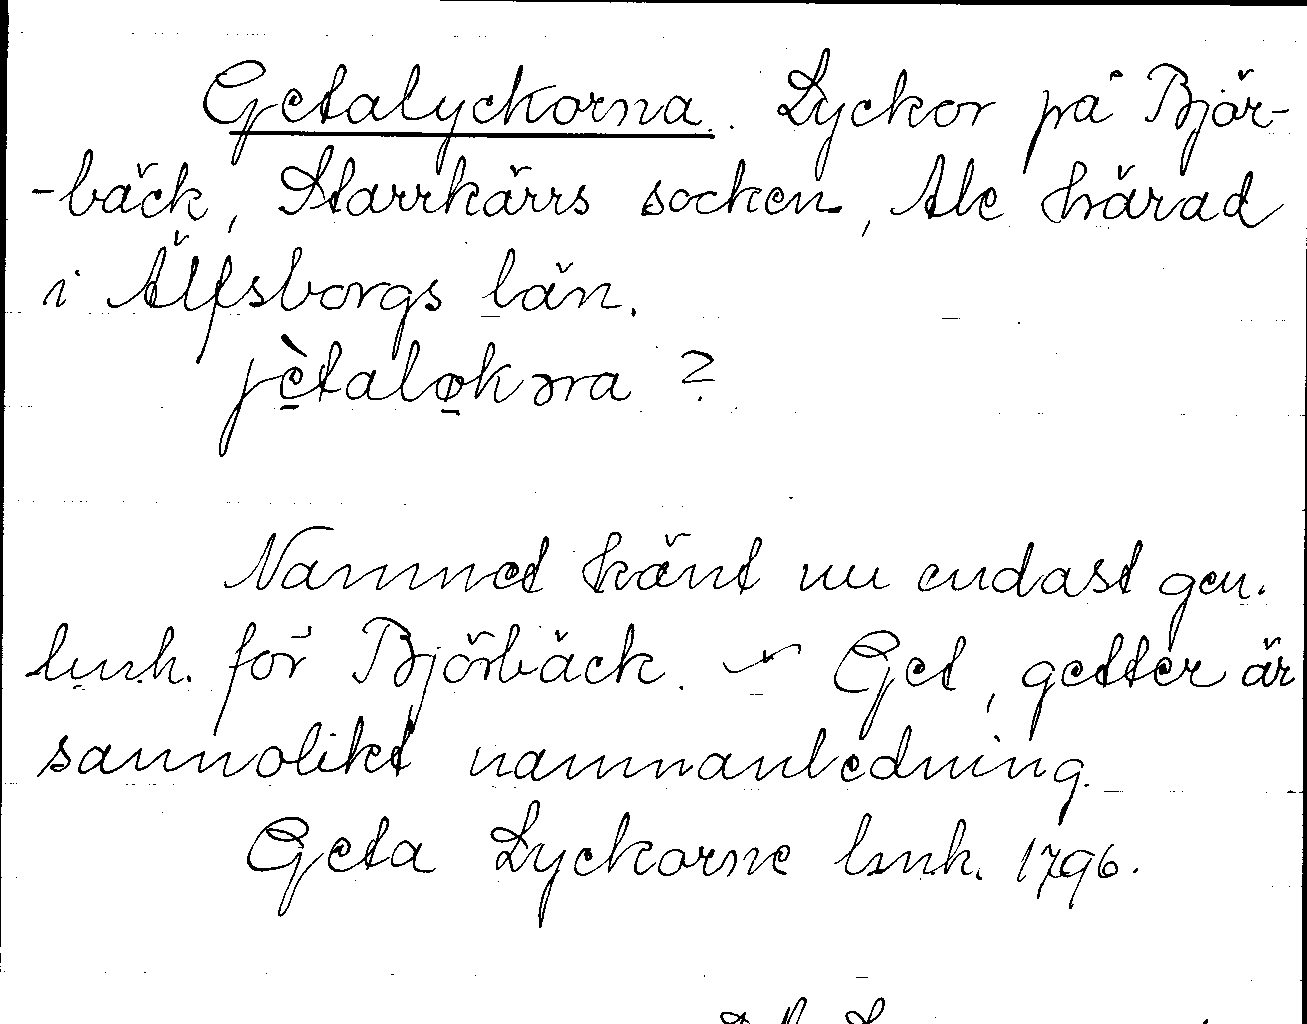 Getalyckorna. Lyckor på Björ-
-bäck, Starrkärrs socken, Ale härad
i Älfsborgs län.
jètalo̱kəra ?
Namnet känt nu endast gen.
lmk. för Björbäck. - Get, getter är
sannolikt namnanledning.
Geta Lyckorne lmk. 1796.